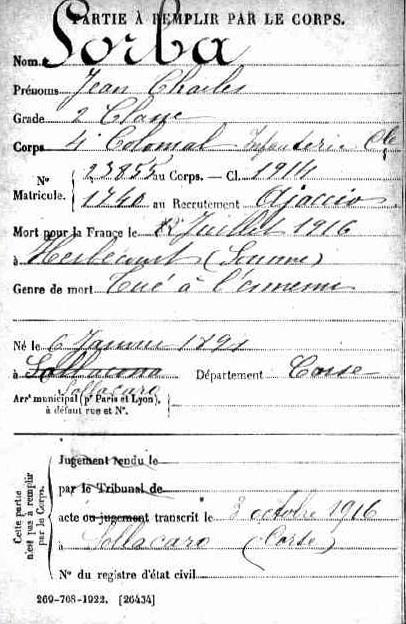 PARTIE À REMPLIR PAR LE CORPS.
Nom Sorba
Prénoms Jean Charles
Grade 2 Classe
Corps 4e Colonial Infanterie Cle
N° Matricule. { 23855 au Corps. — Cl. 1914
1740 au Recrutement Ajaccio
Mort pour la France le Juillet 1916
à Herbécourt (Somme)
Genre de mort Tué à l'ennemi
Né le 6 Janvier 1894
à Sollacaro Département Corse
Sollacaro
Arrt municipal (pr Paris et Lyon),
à défaut rue et N°.
Cette partie
n'est pas à remplir
par le Corps.
Jugement rendu le
par le Tribunal de
acte ou jugement transcrit le 3 octobre 1916
à Sollacaro (Corse)
N° du registre d'état civil
269-708-1922. [26434]